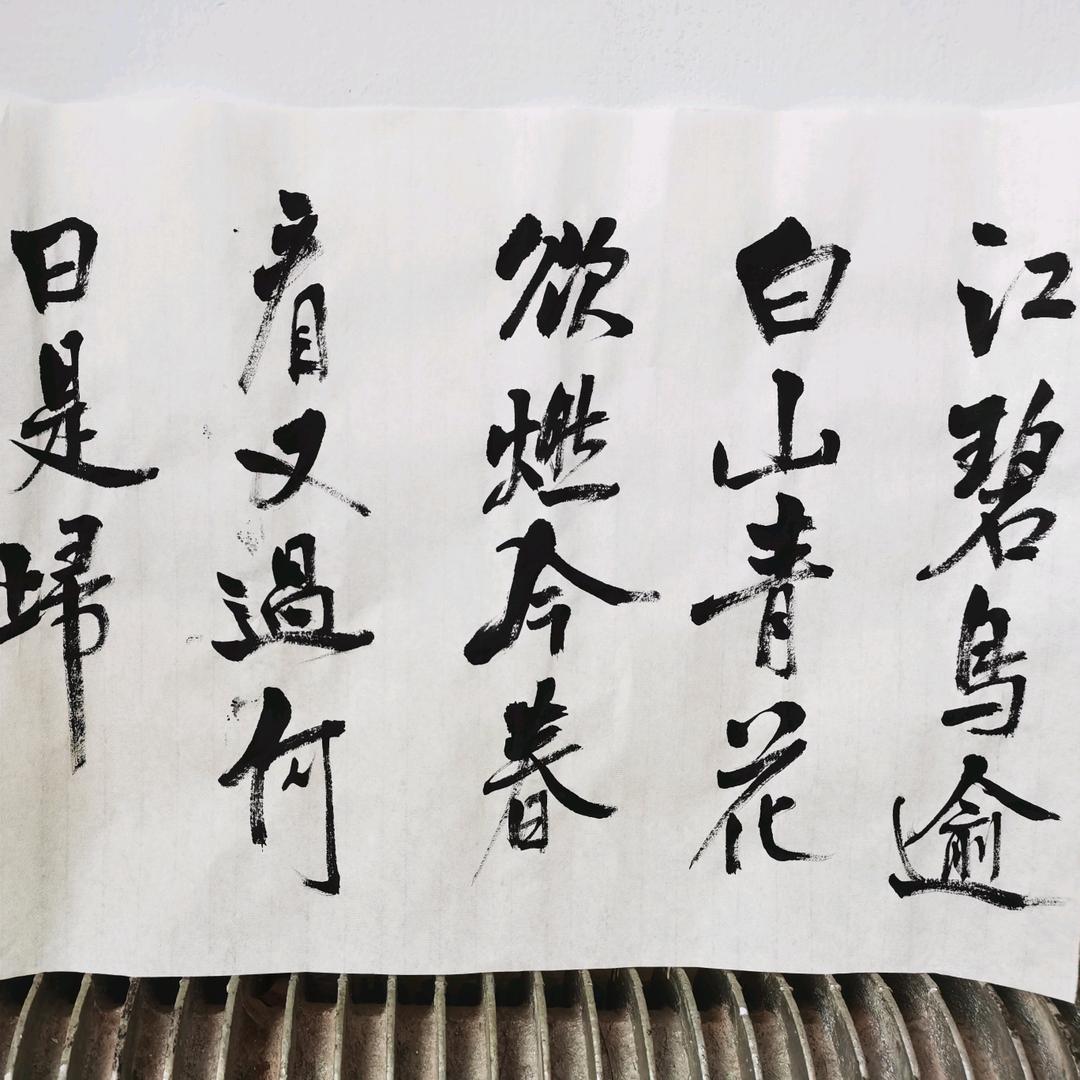 江碧鸟逾
白山青花
欲燃今春
看又過何
日是歸